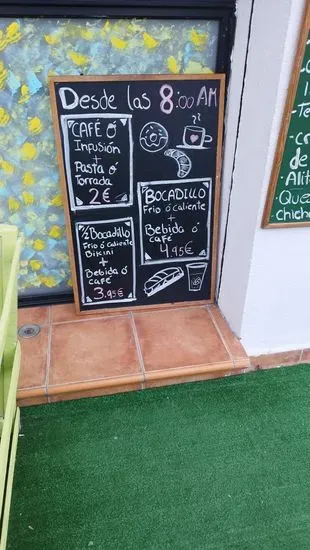 Desde las 8:00 AM
CAFÉ Ó
Infusión
+
Pasta ó
Torrada
2€
BOCADILLO
Frio ó caliente
+
Bebida ó
café
4.95€
½ Bocadillo
Frio ó caliente
Bikini
+
Bebida ó
café
3.95€
de
Alit
Que
chich